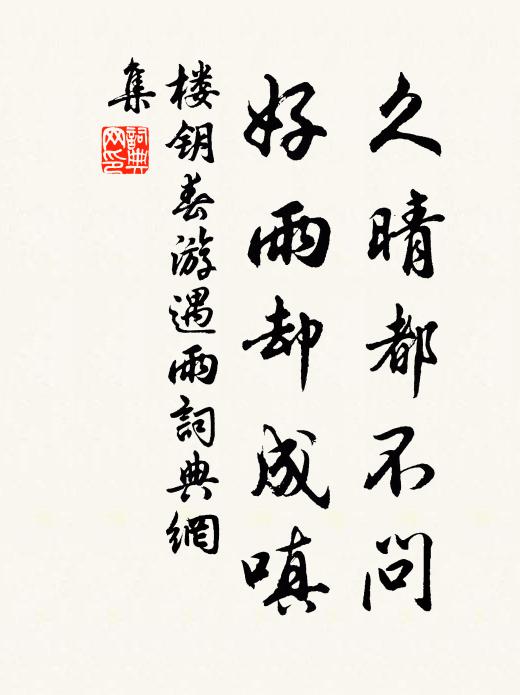 久晴都不问
好雨却成嗔
楼钥春游遇雨詞典網
集
詞典网印